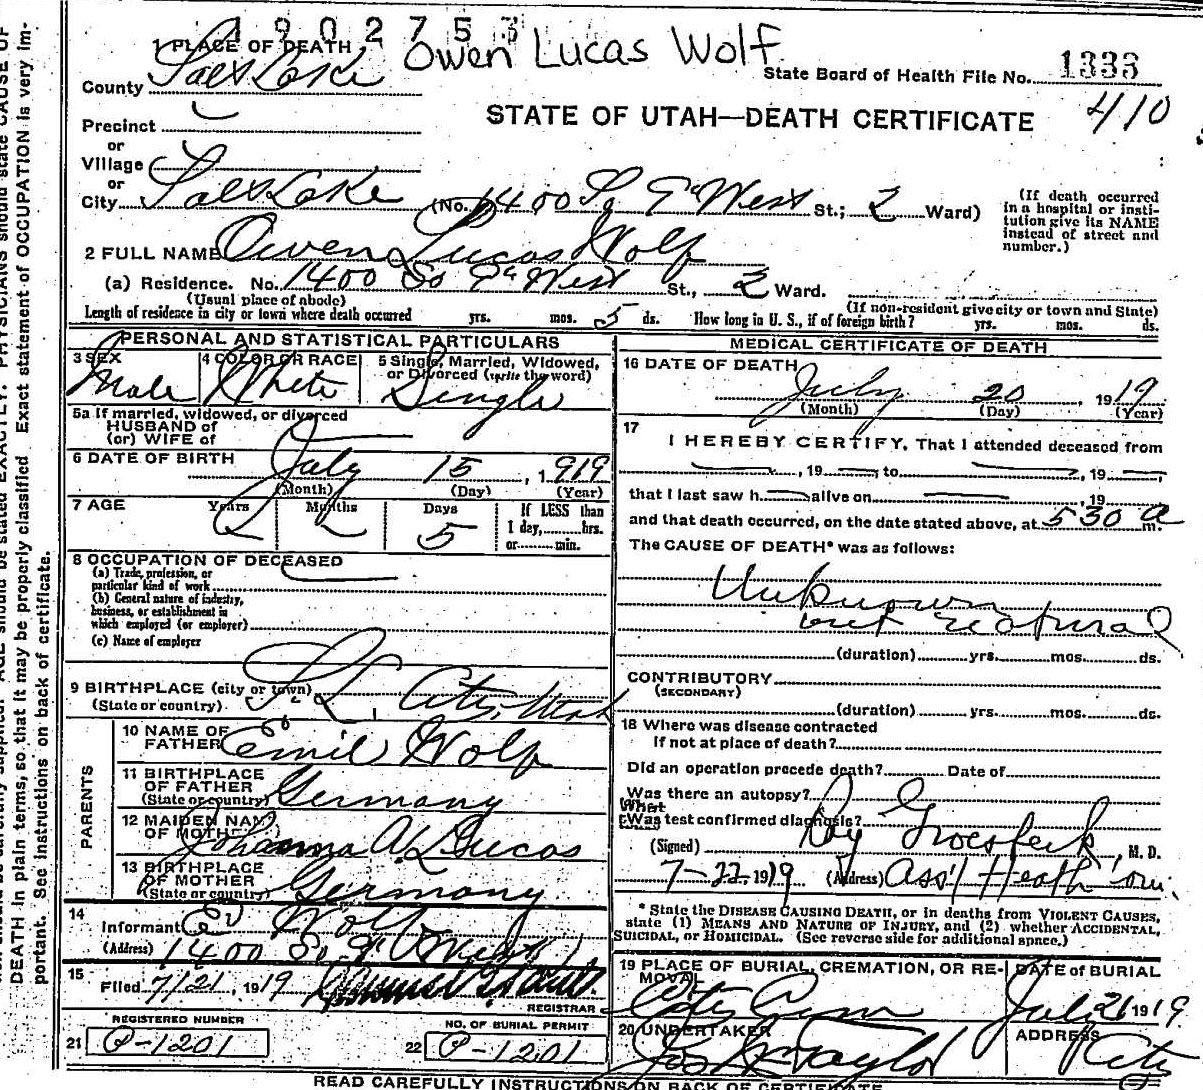 1902753
1 PLACE OF DEATH Owen Lucas Wolf
State Board of Health File No. 1333
County Salt Lake
410
STATE OF UTAH—DEATH CERTIFICATE
Precinct
or
Village
or
City Salt Lake (No. 1400 So West St.; 2 Ward)
(If death occurred in a hospital or insti-
tution give its NAME
instead of street and
number.)
2 FULL NAME Owen Lucas Wolf
(a) Residence. No. 1400 So West St., 2 Ward.
(Usual place of abode)
(If non-resident give city or town and State)
Length of residence in city or town where death occurred yrs. mos. 5 ds. How long in U. S., if of foreign birth? yrs. mos. ds.
PERSONAL AND STATISTICAL PARTICULARS
3 SEX Male
4 COLOR OR RACE White
5 Single, Married, Widowed,
or Divorced (write the word)
Single
5a If married, widowed, or divorced
HUSBAND of
(or) WIFE of
6 DATE OF BIRTH July 15, 1919
(Month) (Day) (Year)
7 AGE Years Months Days If LESS than
5 1 day, hrs.
or min.
8 OCCUPATION OF DECEASED
(a) Trade, profession, or
particular kind of work
(b) General nature of industry,
business, or establishment in
which employed (or employer)
(c) Name of employer
9 BIRTHPLACE (city or town) S. L. City, Utah
(State or country)
PARENTS
10 NAME OF
FATHER Emil Wolf
11 BIRTHPLACE
OF FATHER
(State or country) Germany
12 MAIDEN NAME
OF MOTHER Johanna A. L. Lucas
13 BIRTHPLACE
OF MOTHER
(State or country) Germany
14
Informant E Wolf
(Address) 1400 So West
15
Filed 7/21, 1919
REGISTRAR
REGISTERED NUMBER
21 P-1201
NO. OF BURIAL PERMIT
22 P-1201
MEDICAL CERTIFICATE OF DEATH
16 DATE OF DEATH
July 20, 1919
(Month) (Day) (Year)
17
I HEREBY CERTIFY, That I attended deceased from
, 19 to , 19
that I last saw h alive on , 19
and that death occurred, on the date stated above, at 530 a m.
The CAUSE OF DEATH* was as follows:
Unknown
but natural
(duration) yrs. mos. ds.
CONTRIBUTORY
(SECONDARY)
(duration) yrs. mos. ds.
18 Where was disease contracted
if not at place of death?
Did an operation precede death? Date of
Was there an autopsy?
What
test confirmed diagnosis?
(Signed) Roy Groesbeck, M. D.
7-22, 1919 (Address) Ass't Health Com.
* State the DISEASE CAUSING DEATH, or in deaths from VIOLENT CAUSES,
state (1) MEANS AND NATURE OF INJURY, and (2) whether ACCIDENTAL,
SUICIDAL, or HOMICIDAL. (See reverse side for additional space.)
19 PLACE OF BURIAL, CREMATION, OR RE-
MOVAL
City Cem
DATE of BURIAL
July 21 1919
20 UNDERTAKER
Taylor
ADDRESS
City
READ CAREFULLY INSTRUCTIONS ON BACK OF CERTIFICATE
DEATH in plain terms, so that it may be properly classified. Exact statement of OCCUPATION is very im-
portant. See instructions on back of certificate.